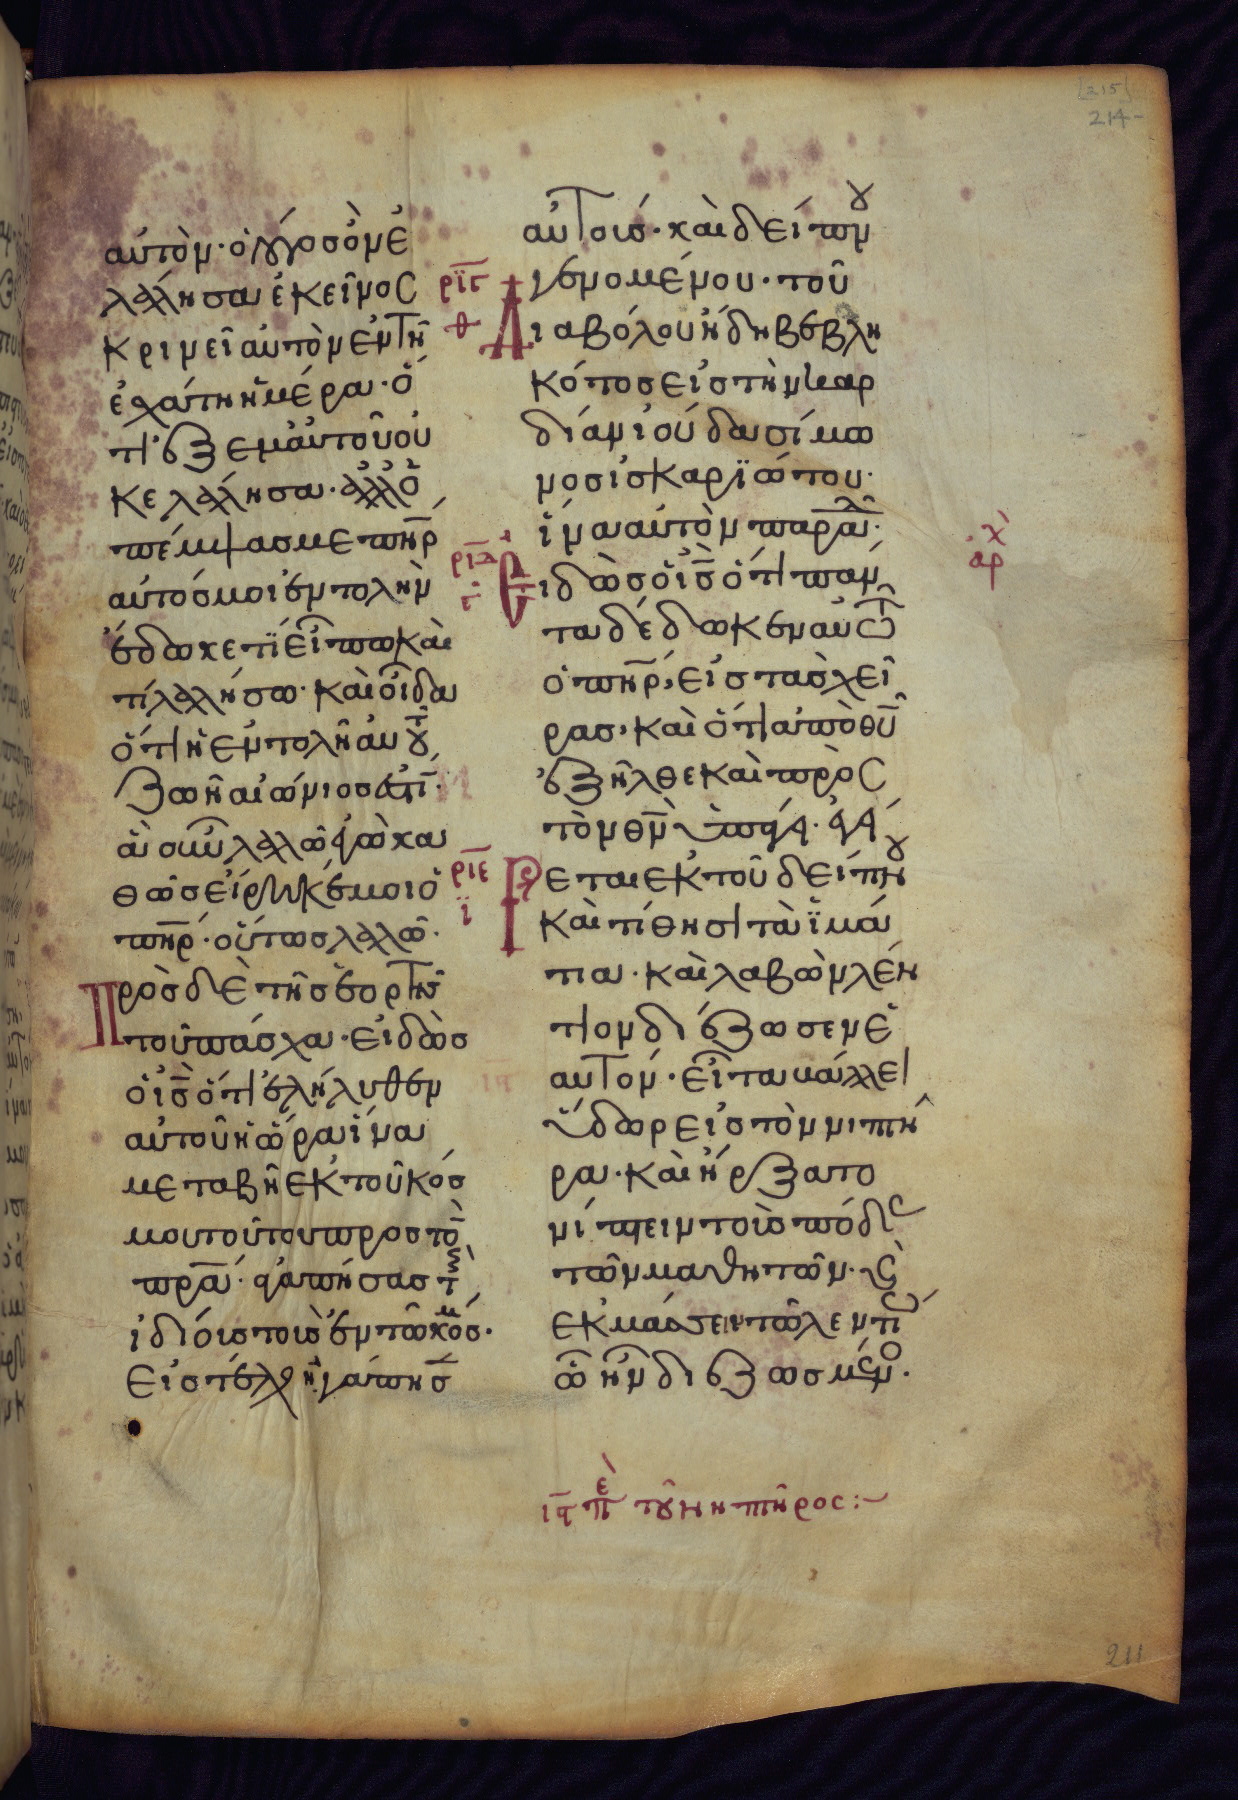 [215]
214-
αὐτὸν· ὁ λόγος ὃν ἐ
λάλησα ἐκεῖνος
κρινεῖ αὐτὸν ἐν τῆ
ἐσχάτη ἡμέρα· ὅ
τι ἐξ ἐμαυτοῦ οὐ
κ ἐλάλησα· ἀλλ ὁ
πέμψας με πη̅ρ
αὐτός μοι ἐντολὴν
ἔδωκε τί εἴπω καὶ
τί λαλήσω· καὶ οἶδα
ὅτι ἡ ἐντολὴ αὐτοῦ
ζωὴ αἰώνιος ἐστι̅·
ἃ οὖν λαλῶ ἐγὼ κα
θὼς εἴρηκέν μοι ὁ
πη̅ρ· οὕτως λαλῶ·
Πρὸ δὲ τῆς ἑορτῆς
τοῦ πάσχα· εἰδὼς
ὁ ι̅ς ὅτι ἐλήλυθεν
αὐτοῦ ἡ ὥρα ἵνα
μεταβῆ ἐκ τοῦ κόσ
μου τούτου προς τὸ̅
πρ̅α· ἀγαπήσας τοὺς
ἰδίοις τοὶς ἐν τῶ κόσμ·
εἰς τέλος ἠγάπησ̅
αὐτοις· καὶ δείπνου
γενομένου· τοῦ
ρι̅γ
θ
Διαβόλου ἤδη βεβλη
κότος εἰς τὴν καρ
δίαν ιούδα σίμω
νος ισκαριώτου·
ἵνα αὐτὸν παραδῶ·
χ
αρ
ρι̅δ
γ
Εἰδὼς ὁ ι̅ς ὅτι παν
τα δέδωκεν αὐτῶ
ὁ πη̅ρ, εἰς τὰς χεῖ
ρας, καὶ ὅτι απὸ θυ̅
ἐξῆλθε καὶ πρὸς
τὸν θν̅ ὑπάγει· ἐγεί
ρι̅ε
ι
Ρεται ἐκ τοῦ δείπνου
καὶ τίθησι τὰ ϊμά
τια· καὶ λαβὼν λέν
τιον διέζωσεν ἑ
αυτόν· εἶτα βάλλει
ὕδωρ εἰς τὸν νιπτῆ
ρα· καὶ ήρξατο
νίπτειν τοὺς πόδας
τῶν μαθητῶν· καὶ
ἐκμάσσειν τῶ λεντίω
ὧ ἦν διεζωσμένος·
ιη̅ πε τοῦ νηπτῆρος:~
211